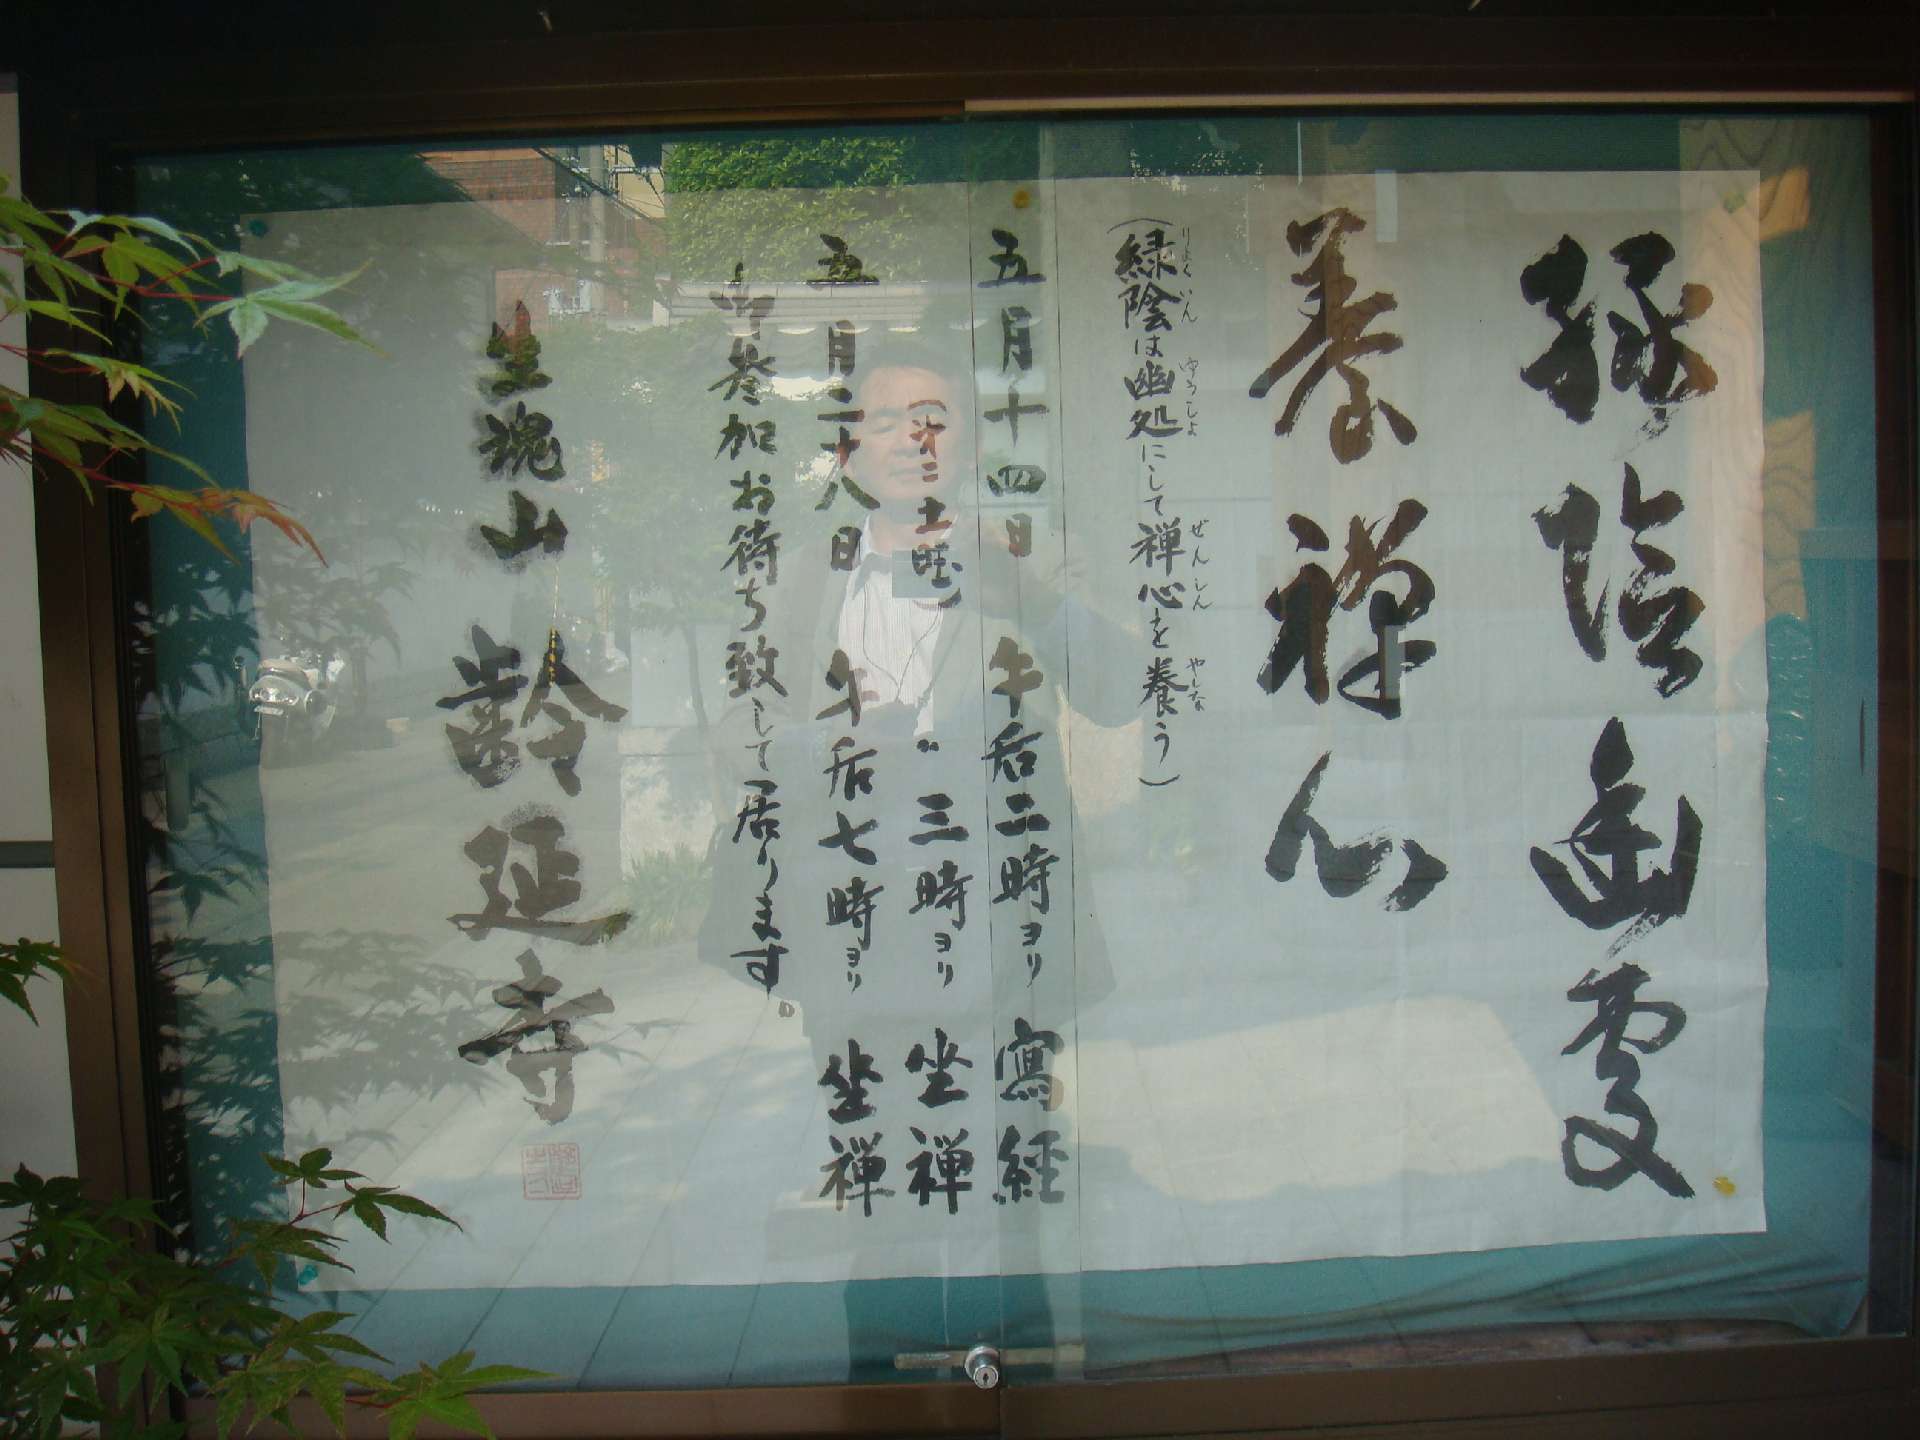 緑陰幽處
養禅心
(緑陰は幽処にして禅心を養う)
りょくいん ゆうしょ ぜんしん やしな
五月十四日 午后二時ヨリ 寫経
(第二土曜) 〃 三時ヨリ 坐禅
五月二十八日 午后七時ヨリ 坐禅
御参加お待ち致して居ります。
生魂山 齢延寺